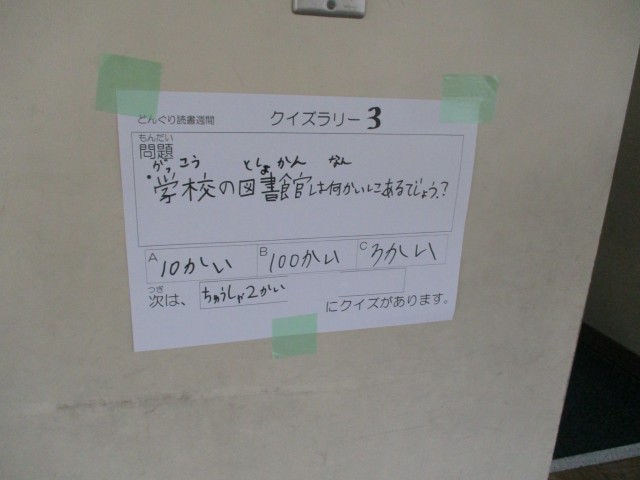 どんぐり読書週間 クイズラリー 3
もんだい
問題
がっこう としょかん なん
・学校の図書館は何かいにあるでしょう?
A 10かい B 100かい C 3かい
つぎ
次は、 ちゅうしゃ2かい にクイズがあります。